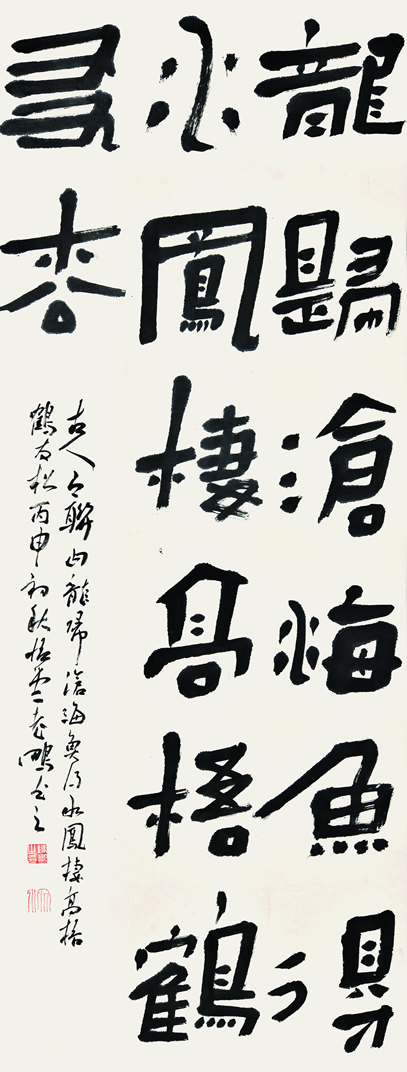 龍歸滄海魚得
水鳳棲高梧鶴
友松
古人聯曰龍歸滄海魚得水鳳棲高梧
鶴友松丙申初秋老鴨书之